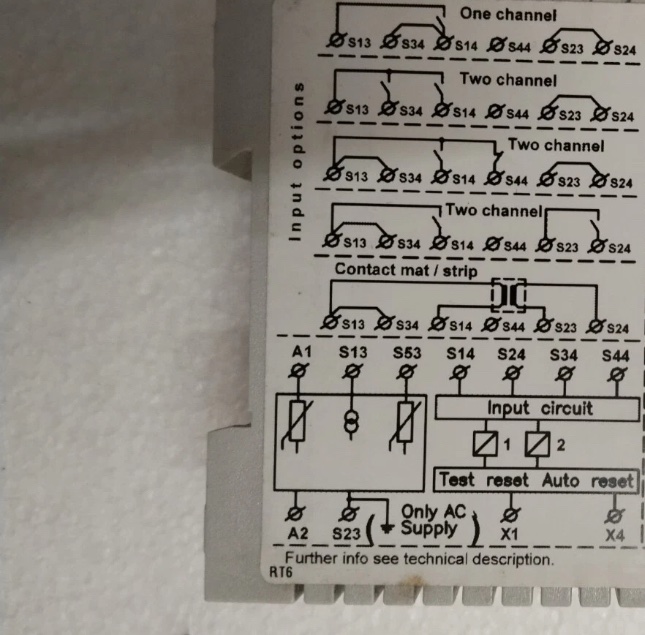 One channel
S13 S34 S14 S44 S23 S24
Two channel
S13 S34 S14 S44 S23 S24
Two channel
S13 S34 S14 S44 S23 S24
Two channel
S13 S34 S14 S44 S23 S24
Contact mat / strip
S13 S34 S14 S44 S23 S24
Input options
A1 S13 S53 S14 S24 S34 S44
Input circuit
1 2
Test reset Auto reset
Only AC
Supply
A2 S23 ( ) X1 X4
Further info see technical description.
RT6